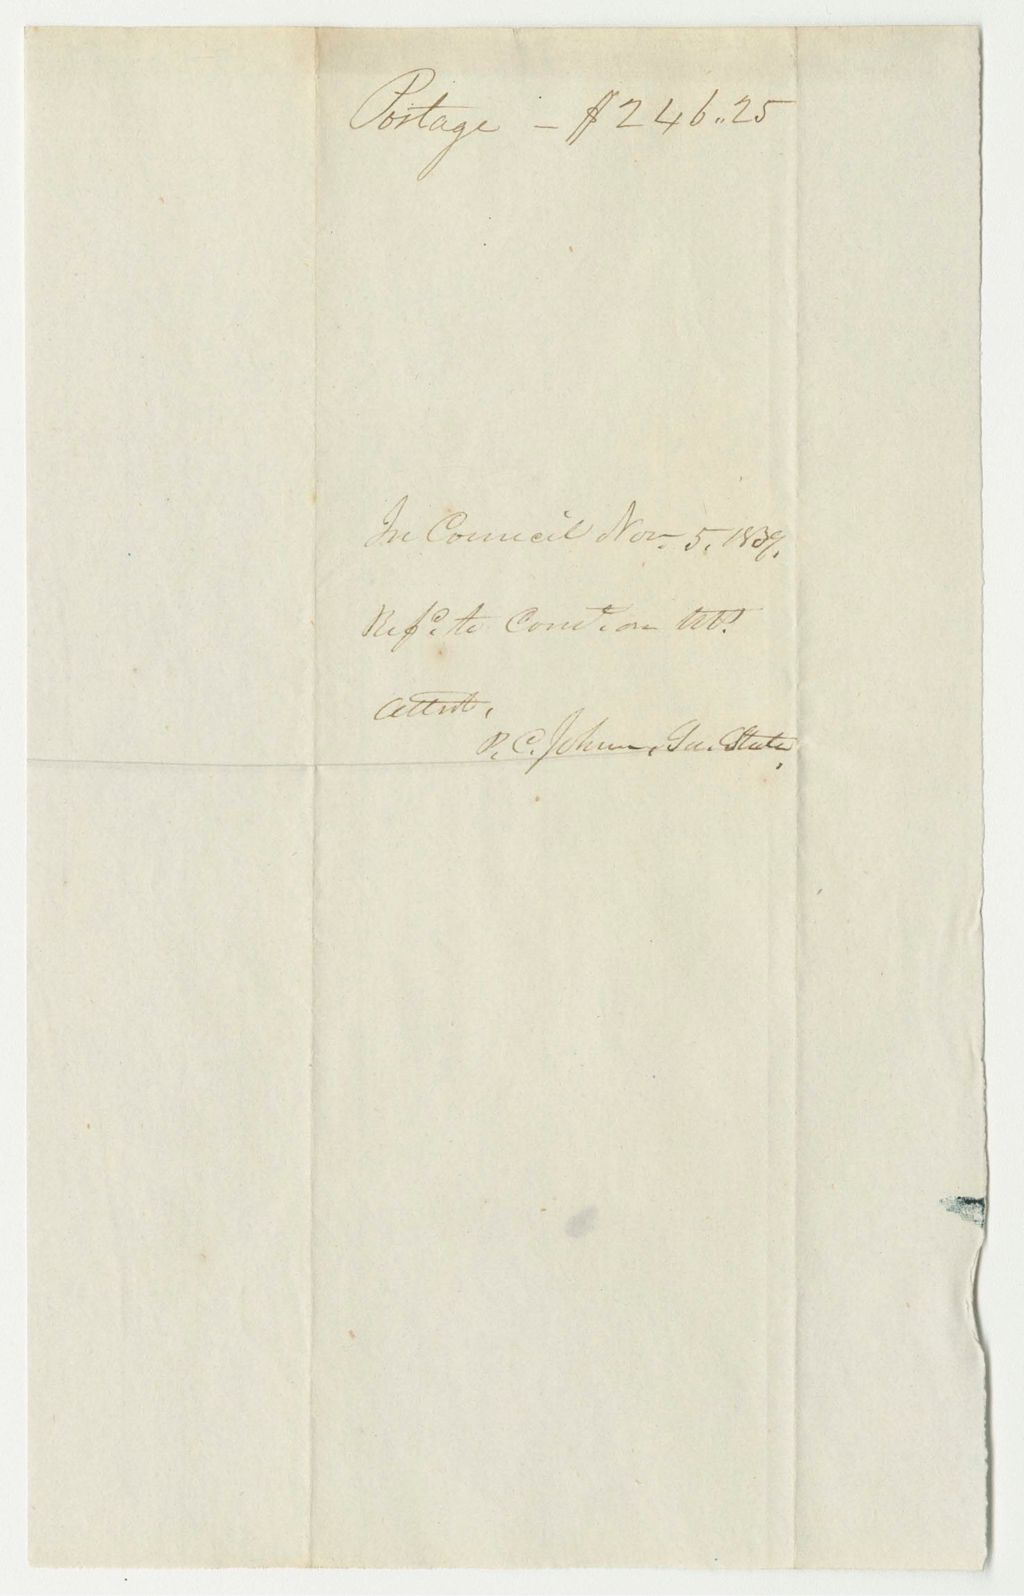 Postage – $246.25
In Council Nov. 5, 1839.
Refd. to Comtee. on Accts.
Attest,
P. C. Johnson, Sec. State,